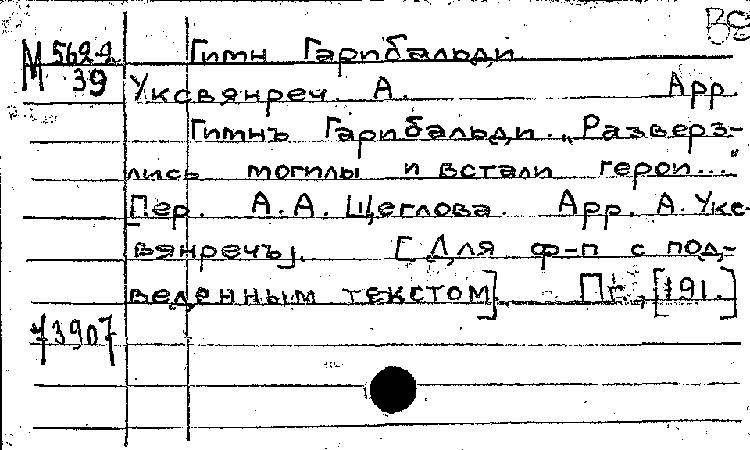 ВЭ
М 562-2 Гимн Гарибальди
39
Уксвянреч А. Арр.
Гимнъ Гарибальди. „Разверз-
лись могилы и встали герои..."
Пер. А.А. Щеглова. Арр. А. Укс-
вянречъ]. [Для ф-п с под-
веденным текстом]. Пг., [191.]
73907